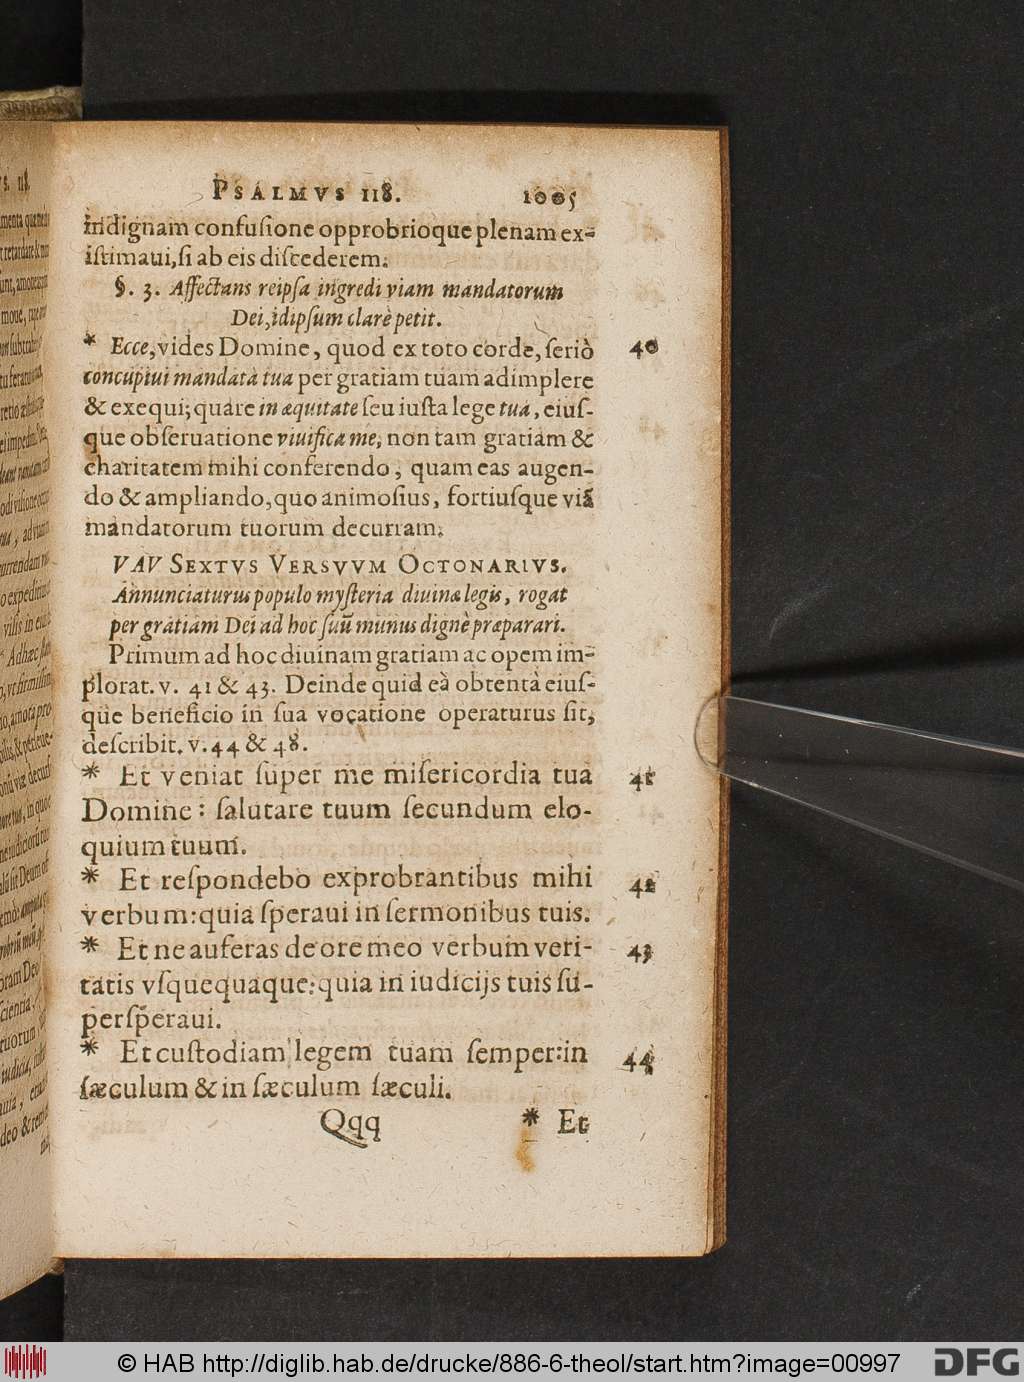 PSALMVS 118. 1005
indignam confuſione opprobrioque plenam ex-
iſtimaui, ſi ab eis diſcederem.
§. 3. Affectans reipſa ingredi viam mandatorum
Dei, idipſum clarè petit.
* Ecce, vides Domine, quod ex toto corde, ſeriò 40
concupiui mandata tua per gratiam tuam adimplere
& exequi; quare in æquitate ſeu iuſta lege tua, eiuſ-
que obſeruatione viuifica me, non tam gratiam &
charitatem mihi conferendo, quam eas augen-
do & ampliando, quo animoſius, fortiuſque viã
mandatorum tuorum decurram.
VAV SEXTVS VERSVVM OCTONARIVS.
Annunciaturus populo myſteria diuinæ legis, rogat
per gratiam Dei ad hoc ſuũ munus dignè præparari.
Primum ad hoc diuinam gratiam ac opem im-
plorat. v. 41 & 43. Deinde quid eâ obtentâ eiuſ-
que beneficio in ſua vocatione operaturus ſit,
deſcribit. v. 44 & 48.
* Et veniat ſuper me miſericordia tua 41
Domine: ſalutare tuum ſecundum elo-
quium tuum.
* Et reſpondebo exprobrantibus mihi 42
verbum: quia ſperaui in ſermonibus tuis.
* Et ne auferas de ore meo verbum veri- 43
tatis vſquequaque: quia in iudicijs tuis ſu-
perſperaui.
* Et cuſtodiam legem tuam ſemper: in 44
ſæculum & in ſæculum ſæculi.
Qqq * Et
© HAB http://diglib.hab.de/drucke/886-6-theol/start.htm?image=00997
DFG